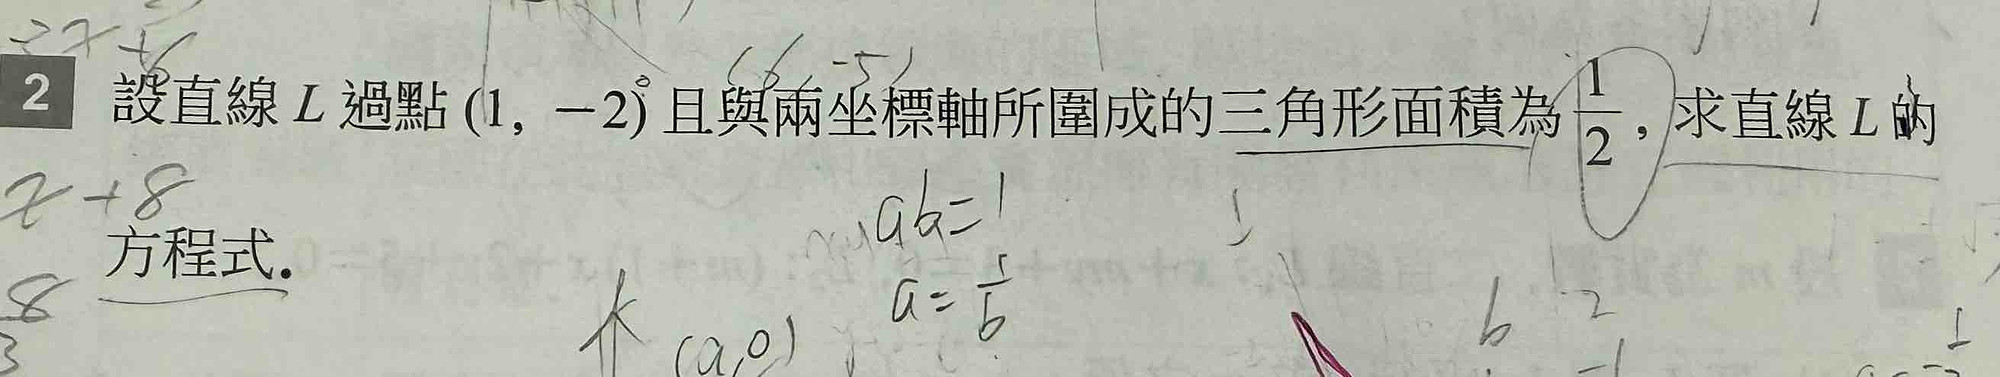 (6, -5)
2 設直線 L 過點 (1, -2) 且與兩坐標軸所圍成的三角形面積為 1/2, 求直線 L 的
+8
ab=1
方程式.
8
3
a=1/b
(a,0)
b
-2